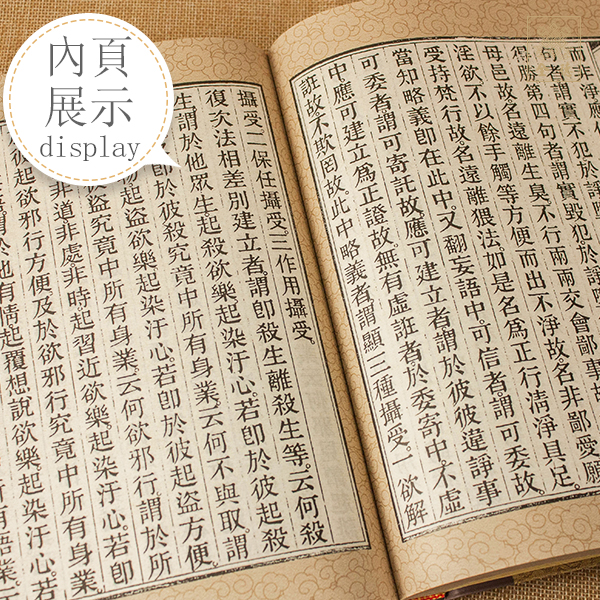 內頁
展示
display
而非淨應
句者謂實不犯於諍
得勝第四句者謂實毀犯於諍
母邑故名遠離生臭不行兩兩交會鄙事
淫欲不以餘手觸等方便而出不淨故名非鄙愛願
受持梵行故名遠離猥法如是名爲正行清淨具足
當知略義卽在此中又翻妄語中可信者謂可委故
可委者謂可寄託故應可建立者謂於彼彼違諍事
中應可建立爲正證故無有虛誑者於委寄中不虛
誑故不欺罔故此中略義者謂顯三種攝受一欲解
攝受二保任攝受三作用攝受
復次法相差別建立者謂卽殺生離殺生等云何殺
生謂於他眾生起殺欲樂起染汙心若卽於彼起殺
方便及卽於彼殺究竟中所有身業云何不與取謂
起盜欲樂起染汙心若卽於彼起盜方便
盜究竟中所有身業云何欲邪行謂於所
非道非處非時起習近欲樂起染汙心若卽
起欲邪行方便及於欲邪行究竟中所有身業
謂於他有情起覆想說欲樂起染汙心若
有語業